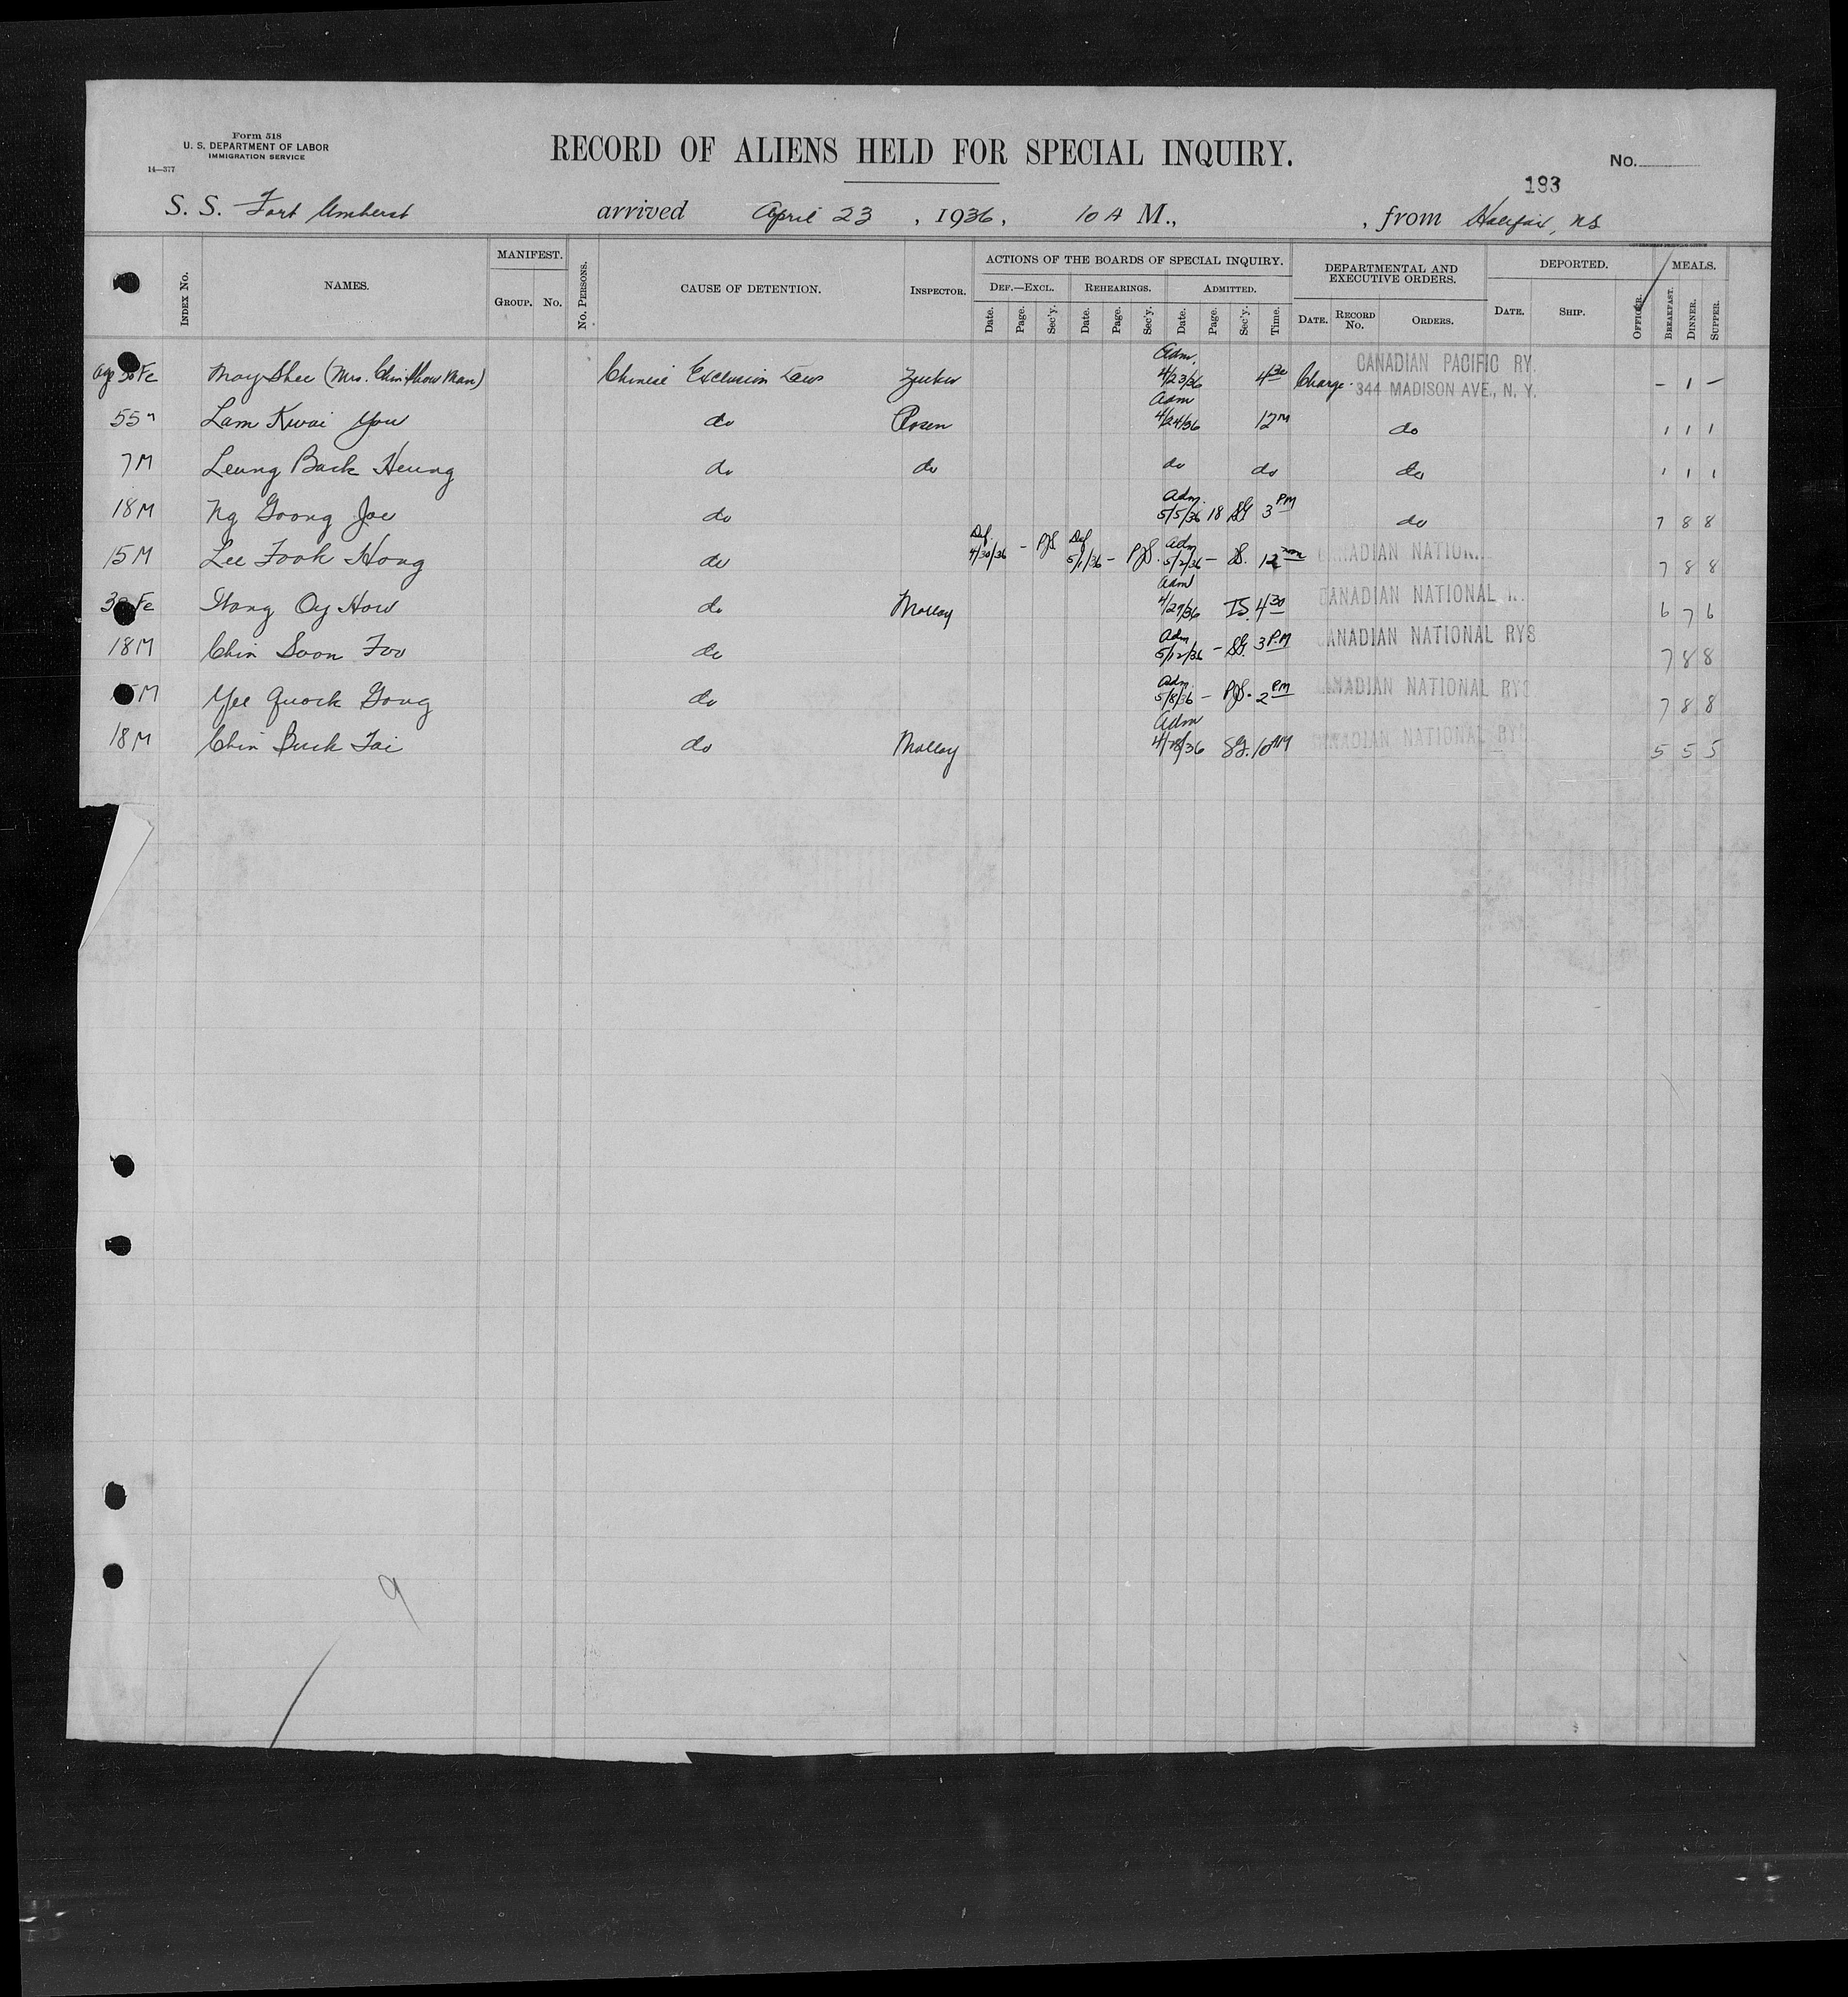 Form 518
U. S. DEPARTMENT OF LABOR
IMMIGRATION SERVICE
14—377
RECORD OF ALIENS HELD FOR SPECIAL INQUIRY.
No.
193
S. S. Fort Amherst arrived April 23, 1936, 10 A M., , from Halifax, NS
INDEX No. NAMES. MANIFEST. GROUP. No. No. PERSONS. CAUSE OF DETENTION. INSPECTOR. ACTIONS OF THE BOARDS OF SPECIAL INQUIRY. DEPARTMENTAL AND EXECUTIVE ORDERS. DEPORTED. MEALS.
DEF.—EXCL. REHEARINGS. ADMITTED.
Date. Page. Sec'y. Date. Page. Sec'y. Date. Page. Sec'y. Time. DATE. RECORD No. ORDERS. DATE. SHIP. OFFICER. BREAKFAST. DINNER. SUPPER.
Age 30 Fe Moy Shee (Mrs. Chin Man) Chinese Exclusion Laws Adm. 4/23/36 4 30 Charge CANADIAN PACIFIC RY. 344 MADISON AVE., N. Y. — 1 —
55 M Lam Kwai You do Rosen Adm 4/24/36 12 M do 1 1 1
7 M Leung Back Heung do do do do do 1 1 1
18 M Ng Goong Joe do Adm. 5/5/36 18 SG 3 PM do 7 8 8
15 M Lee Fook Hong do Def. 4/30/36 — PJS Def 5/1/36 — PJS. Adm 5/2/36 — S. 12 noon CANADIAN NATION 7 8 8
Fe Wong Oy How do Molloy Adm 4/29/36 IS 4 30 CANADIAN NATIONAL 6 7 6
18 M Chin Soon Foo do Adm 5/12/36 — SG. 3 P.M CANADIAN NATIONAL RYS 7 8 8
5 M Yee Quock Gong do Adm. 5/8/36 — PJS. 2 PM CANADIAN NATIONAL RYS 7 8 8
18 M Chin Buck Tai do Molloy Adm 4/28/36 SG. 10 AM CANADIAN NATIONAL RYS 5 5 5
9